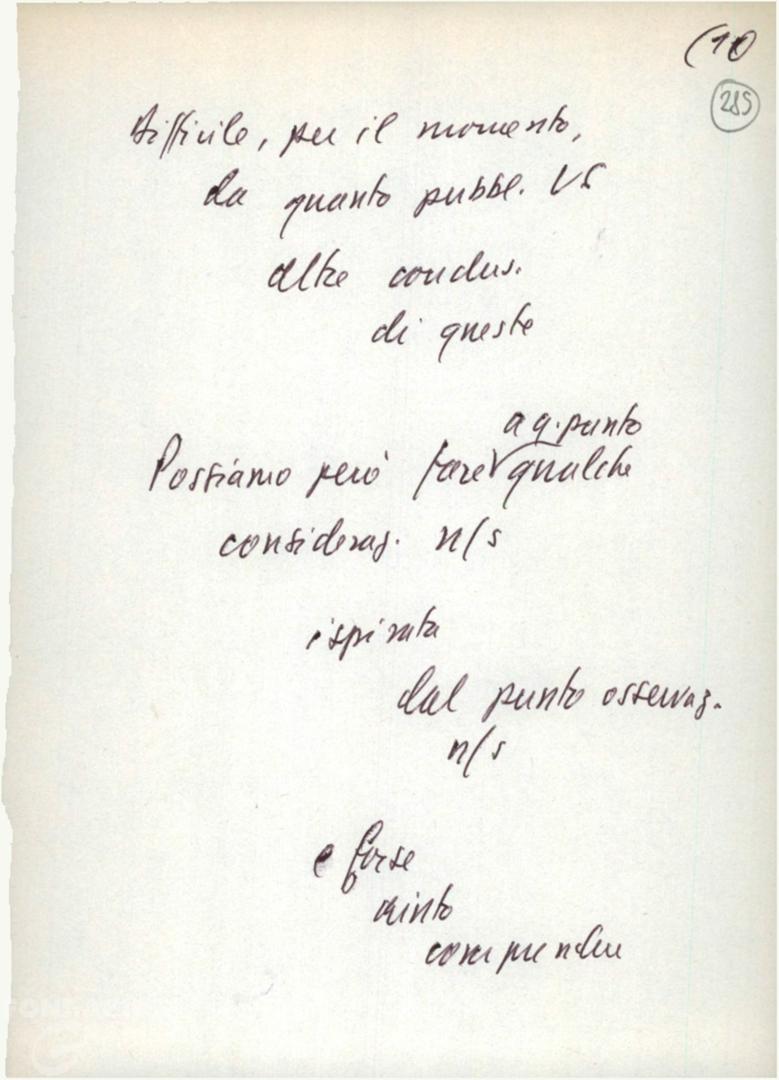 (10
285
Difficile, per il momento,
da quanto pubbl. VS
altre conclus.
di queste
a q. punto
Possiamo però fare qualche
consideraz. n/s
ispirata
dal punto osservaz.
n/s
e forse
aiuto
comprendere